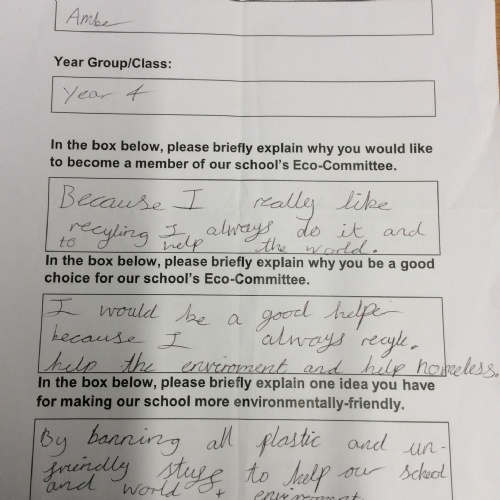 Ambe
Year Group/Class:
Year 4
In the box below, please briefly explain why you would like
to become a member of our school's Eco-Committee.
Because I really like
recyling I always do it and
to help the world.
In the box below, please briefly explain why you be a good
choice for our school's Eco-Committee.
I would be a good helpe
because I always recyle.
help the enviroment and help homeless.
In the box below, please briefly explain one idea you have
for making our school more environmentally-friendly.
By banning all plastic and un-
friendly stuff to help our school
and world + enviroment